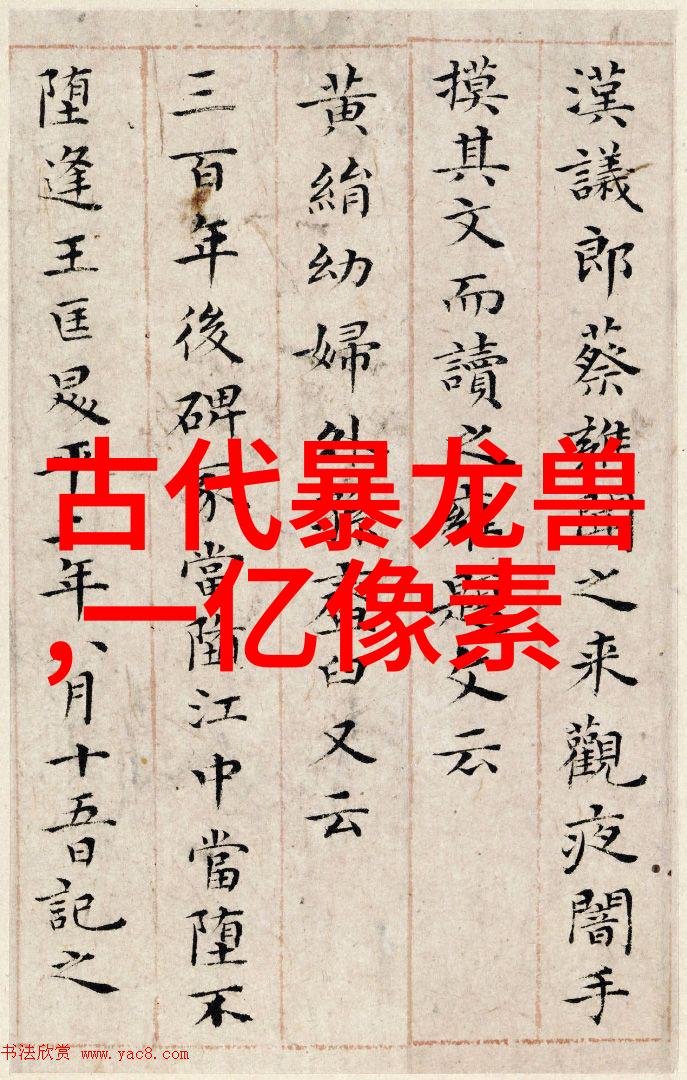 漢議郎蔡雝聞之来觀夜闇手
摸其文而讀之雍題文云
黄絹幼婦外孫齏臼又云
三百年後碑冢當墮江中當墮不
墮逢王匡昇平二年八月十五日記之
古代暴龙兽
,一亿像素
书法欣赏 www.yac8.com